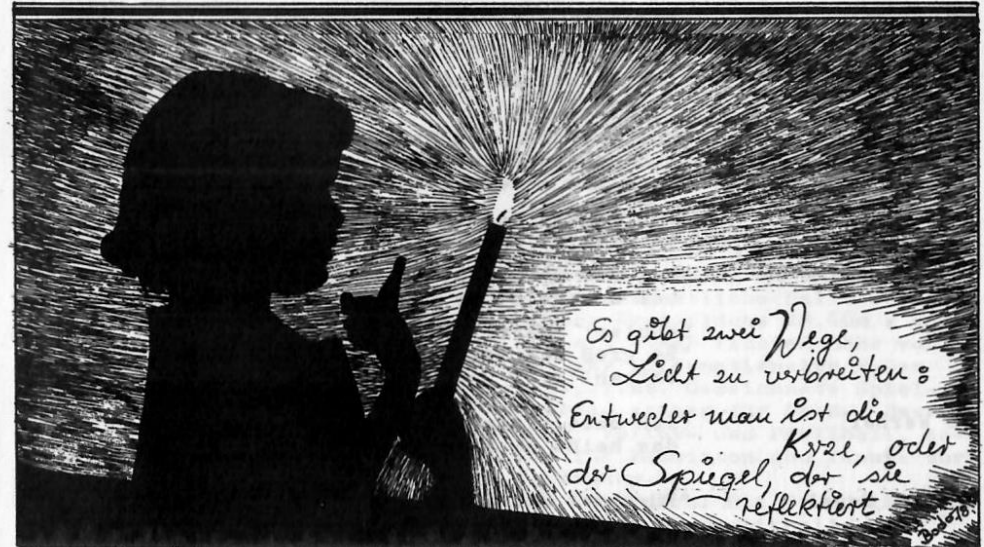 Es gibt zwei Wege,
Licht zu verbreiten:
Entweder man ist die
Krze, oder
der Spiegel, der sie
reflektiert